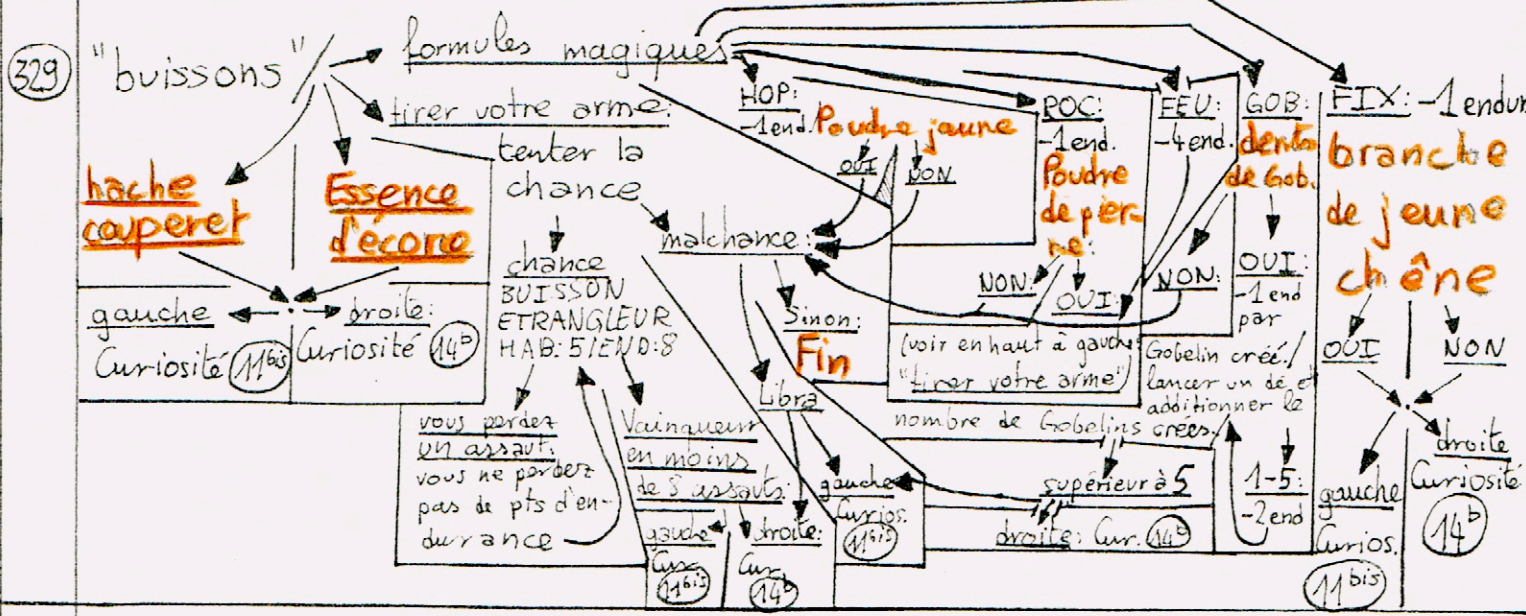 329
"buissons"
formules magiques
tirer votre arme:
tenter la
chance
hache
couperet
Essence
d'écorce
gauche
Curiosité 11bis
droite:
Curiosité 14b
chance
BUISSON
ETRANGLEUR
HAB: 5/END: 8
vous perdez
un assaut:
vous ne perdez
pas de pts d'en-
durance
Vainqueur
en moins
de 5 assauts:
gauche
Cur.
11bis
droite:
Cur.
14b
malchance:
Sinon:
Fin
Libra
gauche
Curios.
11bis
HOP:
-1end. Poudre jaune
OUI
NON
ROC:
-1end.
Poudre
de pier-
re:
NON:
OUI:
(voir en haut à gauche
"tirer votre arme")
FEU:
-4end.
GOB:
dents
de Gob.
NON:
OUI:
-1end
par
Gobelin créé./
lancer un dé, et
additionner le
nombre de Gobelins créés.
supérieur à 5
droite: Cur. 14b
1-5:
-2end
FIX: -1endur
branche
de jeune
chêne
OUI
NON
gauche
Curios.
11bis
droite
Curiosité
14b